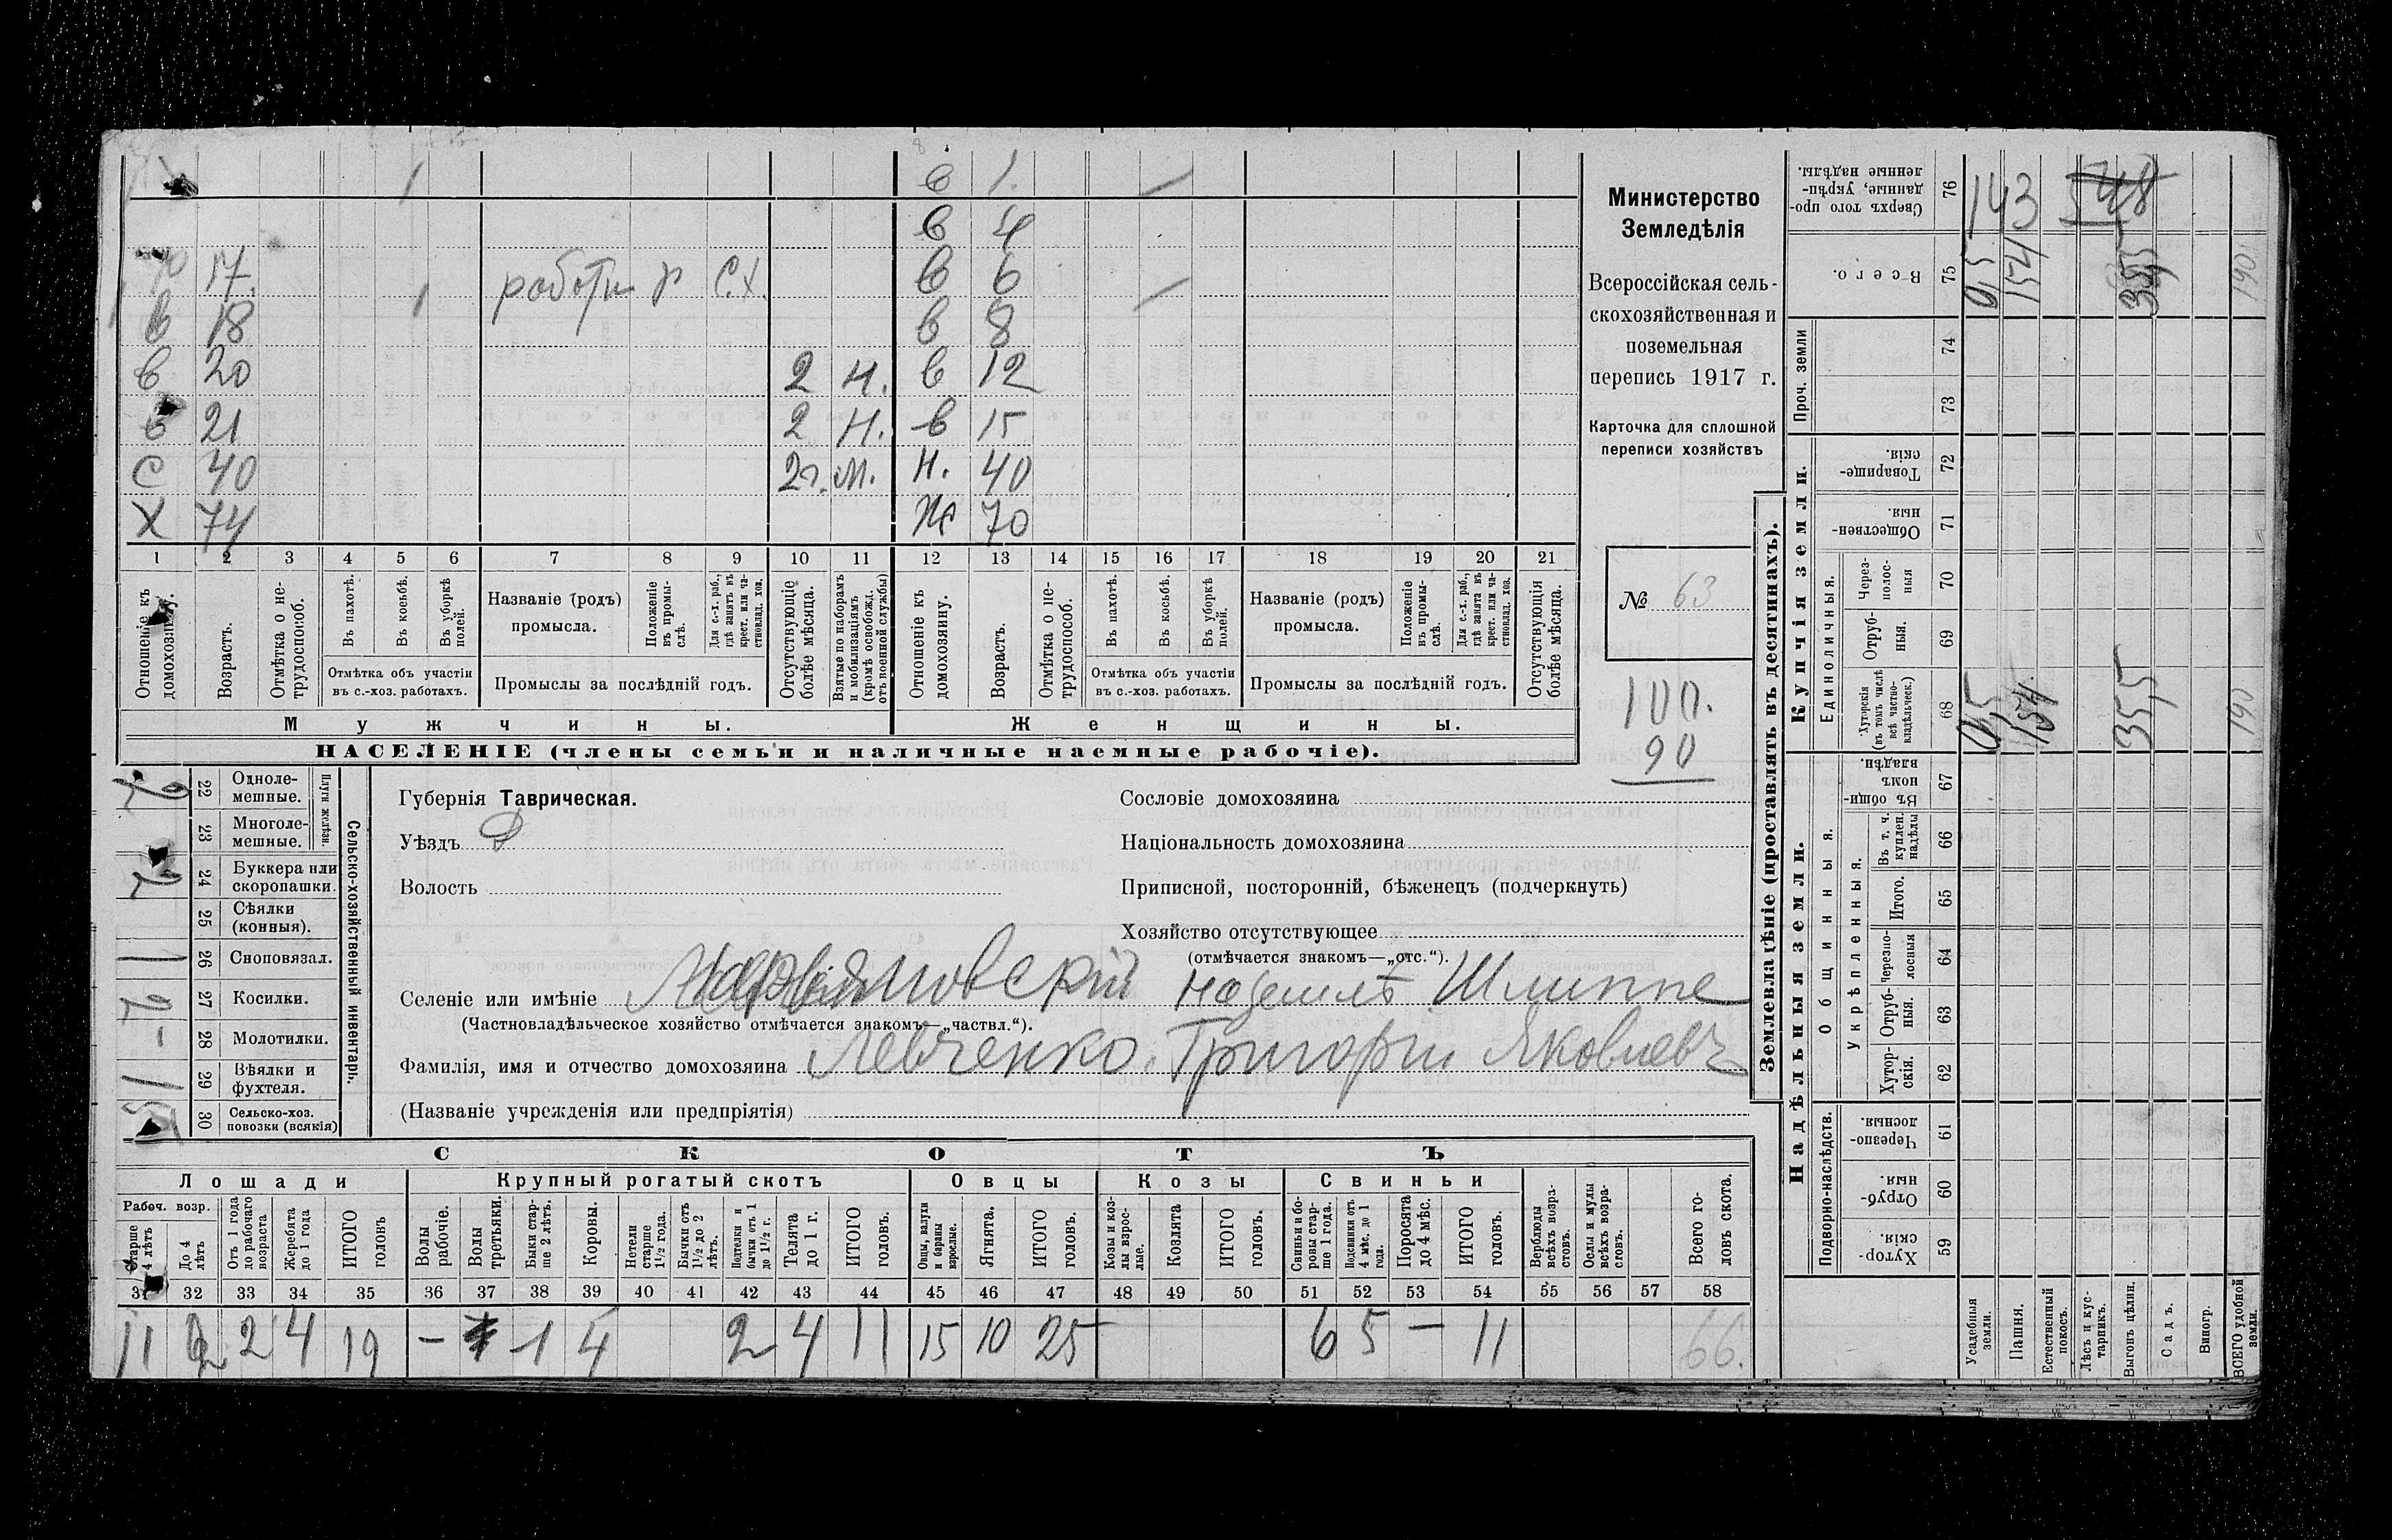 в 1.
в 4
17. работн р С.Х. в 6
в 18 в 8
в 20 2 Н. в 12
в 21 2 Н. в 15
С 40 2 г. М. Н. 40
Х 74 Ж 70
1 2 3 4 5 6 7 8 9 10 11 12 13 14 15 16 17 18 19 20 21
Отношеніе къ домохозяину.
Возрастъ.
Отмѣтка о нетрудоспособ.
Въ пахотѣ.
Въ косьбѣ.
Въ уборкѣ полей.
Отмѣтка объ участіи
въ с.-хоз. работахъ.
Названіе (родъ)
промысла.
Положеніе въ промыслѣ.
Для с.-х. раб., гдѣ занятъ въ крест. или частновлад. хоз.
Промыслы за послѣдній годъ.
Отсутствующіе болѣе мѣсяца.
Взятые по наборамъ и мобилизаціямъ (кромѣ освобожд. отъ военной службы)
Отношеніе къ домохозяину.
Возрастъ.
Отмѣтка о нетрудоспособ.
Въ пахотѣ.
Въ косьбѣ.
Въ уборкѣ полей.
Отмѣтка объ участіи
въ с.-хоз. работахъ.
Названіе (родъ)
промысла.
Положеніе въ промыслѣ.
Для с.-х. раб., гдѣ занята въ крест. или частновлад. хоз.
Промыслы за послѣдній годъ.
Отсутствующія болѣе мѣсяца.
Мужчины. Женщины.
НАСЕЛЕНІЕ (члены семьи и наличные наемные рабочіе).
Министерство
Земледѣлія
Всероссійская сель-
скохозяйственная и
поземельная
перепись 1917 г.
Карточка для сплошной
переписи хозяйствъ
№ 63
100.
90
Сельско-хозяйственный инвентарь.
Плуги желѣзн.
22 Одноле-
мешные.
23 Многоле-
мешные.
24 Буккера или
скоропашки.
25 Сѣялки
(конныя).
1 26 Сноповязал.
2 27 Косилки.
- 28 Молотилки.
1 29 Вѣялки и
фухтеля.
30 Сельско-хоз.
повозки (всякія)
Губернія Таврическая.
Уѣздъ Д
Волость
Сословіе домохозяина
Національность домохозяина
Приписной, посторонній, бѣженецъ (подчеркнуть)
Хозяйство отсутствующее
(отмѣчается знакомъ—„отс.“).
Селеніе или имѣніе Шлиппе
(Частновладѣльческое хозяйство отмѣчается знакомъ—„частвл.“).
Фамилія, имя и отчество домохозяина Левченко Григорій Яковлевъ
(Названіе учрежденія или предпріятія)
СКОТЪ
Лошади Крупный рогатый скотъ Овцы Козы Свиньи
Рабоч. возр.
Старше 4 лѣтъ
До 4 лѣтъ
Отъ 1 года до рабочаго возраста
Жеребята до 1 года
ИТОГО головъ
Волы рабочіе.
Волы третьяки.
Быки старше 2 лѣтъ.
Коровы.
Нетели старше 1½ года.
Бычки отъ 1½ до 2 лѣтъ.
Подтелки и бычки отъ 1 до 1½ г.
Телята до 1 г.
ИТОГО головъ.
Овцы, валухи и бараны взрослые.
Ягнята.
ИТОГО головъ.
Козы и козлы взрослые.
Козлята
ИТОГО головъ.
Свиньи и боровы старше 1 года.
Подсвинки отъ 4 мѣс. до 1 года.
Поросята до 4 мѣс.
ИТОГО головъ.
Верблюды всѣхъ возрастовъ.
Ослы и мулы всѣхъ возрастовъ.
Всего головъ скота.
31 32 33 34 35 36 37 38 39 40 41 42 43 44 45 46 47 48 49 50 51 52 53 54 55 56 57 58
11 2 2 4 19 - 1 4 2 4 11 15 10 25 6 5 - 11 66.
Землевладѣніе (проставлять въ десятинахъ).
Купчія земли.
Надѣльныя земли.
Сверхъ того проданные, укрѣпленные надѣлы. 76 143
Всего. 75 0,5 154 35,5 190
Проч. земли
74
73
Товарищескія. 72
Общественныя. 71
Единоличныя.
Черезполосныя 70
Отрубныя. 69
Хуторскія (въ томъ числѣ всѣ частновладѣльческ.) 68 0,5 154 35,5 190
Общинныя.
Въ общинномъ владѣн. 67
Укрѣпленныя.
Въ т. ч. куплен. надѣлы 66
Итого. 65
Черезполосныя 64
Отрубныя. 63
Хуторскія. 62
Подворно-наслѣдств.
Черезполосныя. 61
Отрубныя. 60
Хуторскія. 59
Усадебныя земли.
Пашня.
Естественный покосъ.
Лѣсъ и кустарникъ.
Выгонъ цѣлин.
Садъ.
Виногр.
ВСЕГО удобной земли.